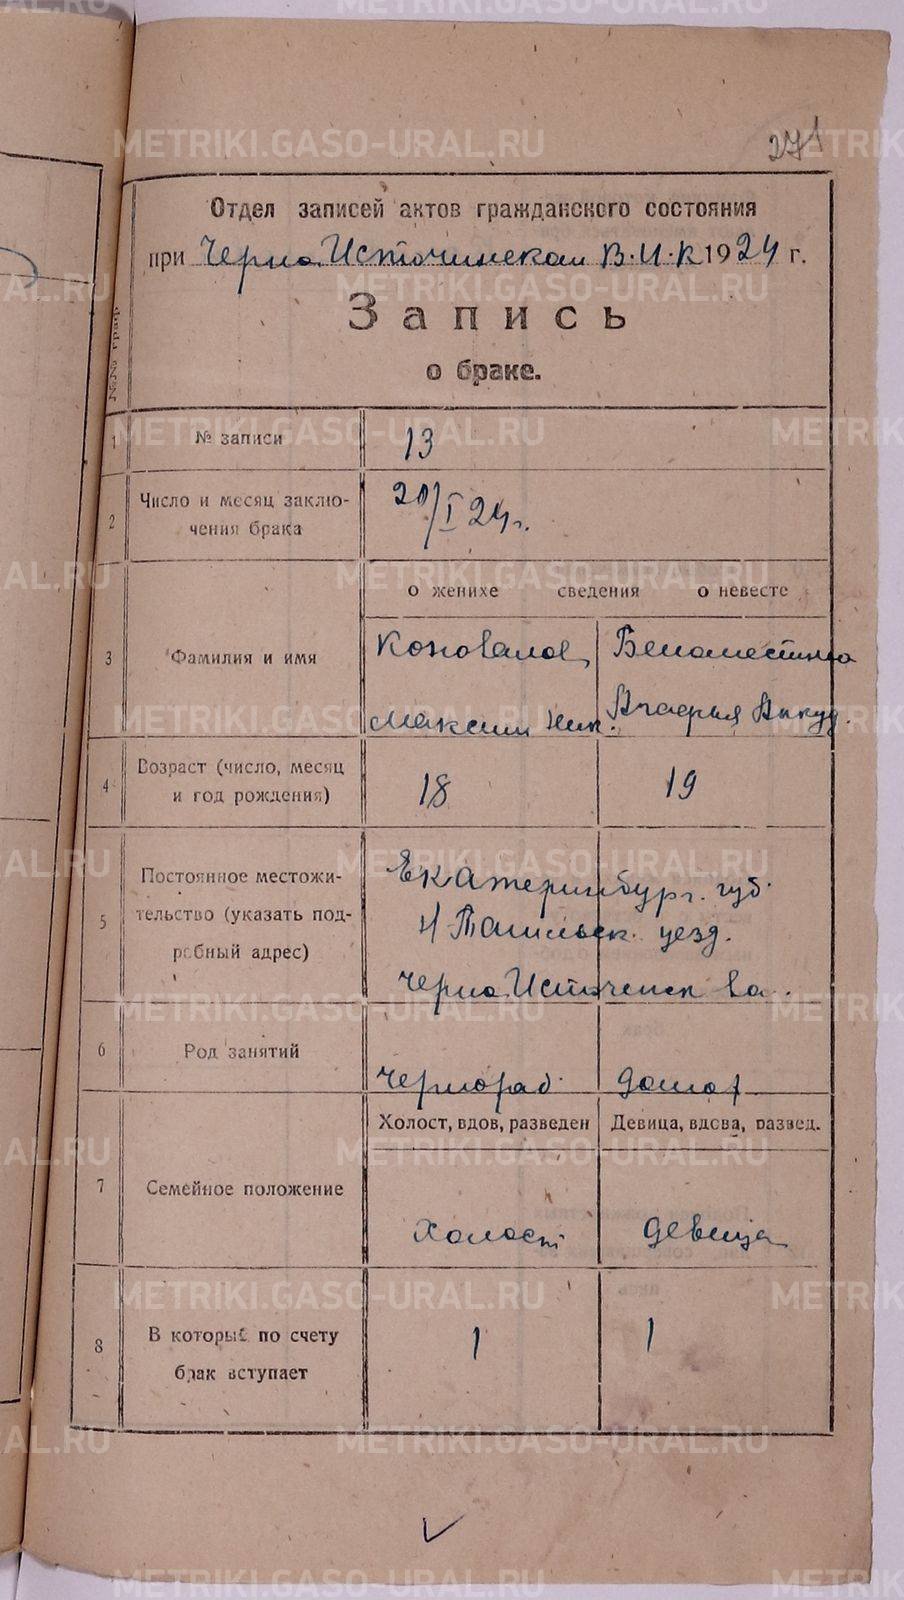 271
Отдел записей актов гражданского состояния
при Черно Источинском В.И.К 1924 г.
Запись
о браке.
№№ граф
1 № записи 13
2 Число и месяц заключения брака 20/I 24 г.
о женихе сведения о невесте
3 Фамилия и имя
Коновалов Беломестнова
Максим Ник.
4 Возраст (число, месяц и год рождения) 18 19
5 Постоянное местожительство (указать подробный адрес)
Екатеринбург. губ.
Н Тагильск. уезд.
Черно Источенск во.
6 Род занятий Чернораб. домох
Холост, вдов, разведен Девица, вдова, развед.
7 Семейное положение холост девица
8 В который по счету брак вступает 1 1
METRIKI.GASO-URAL.RU